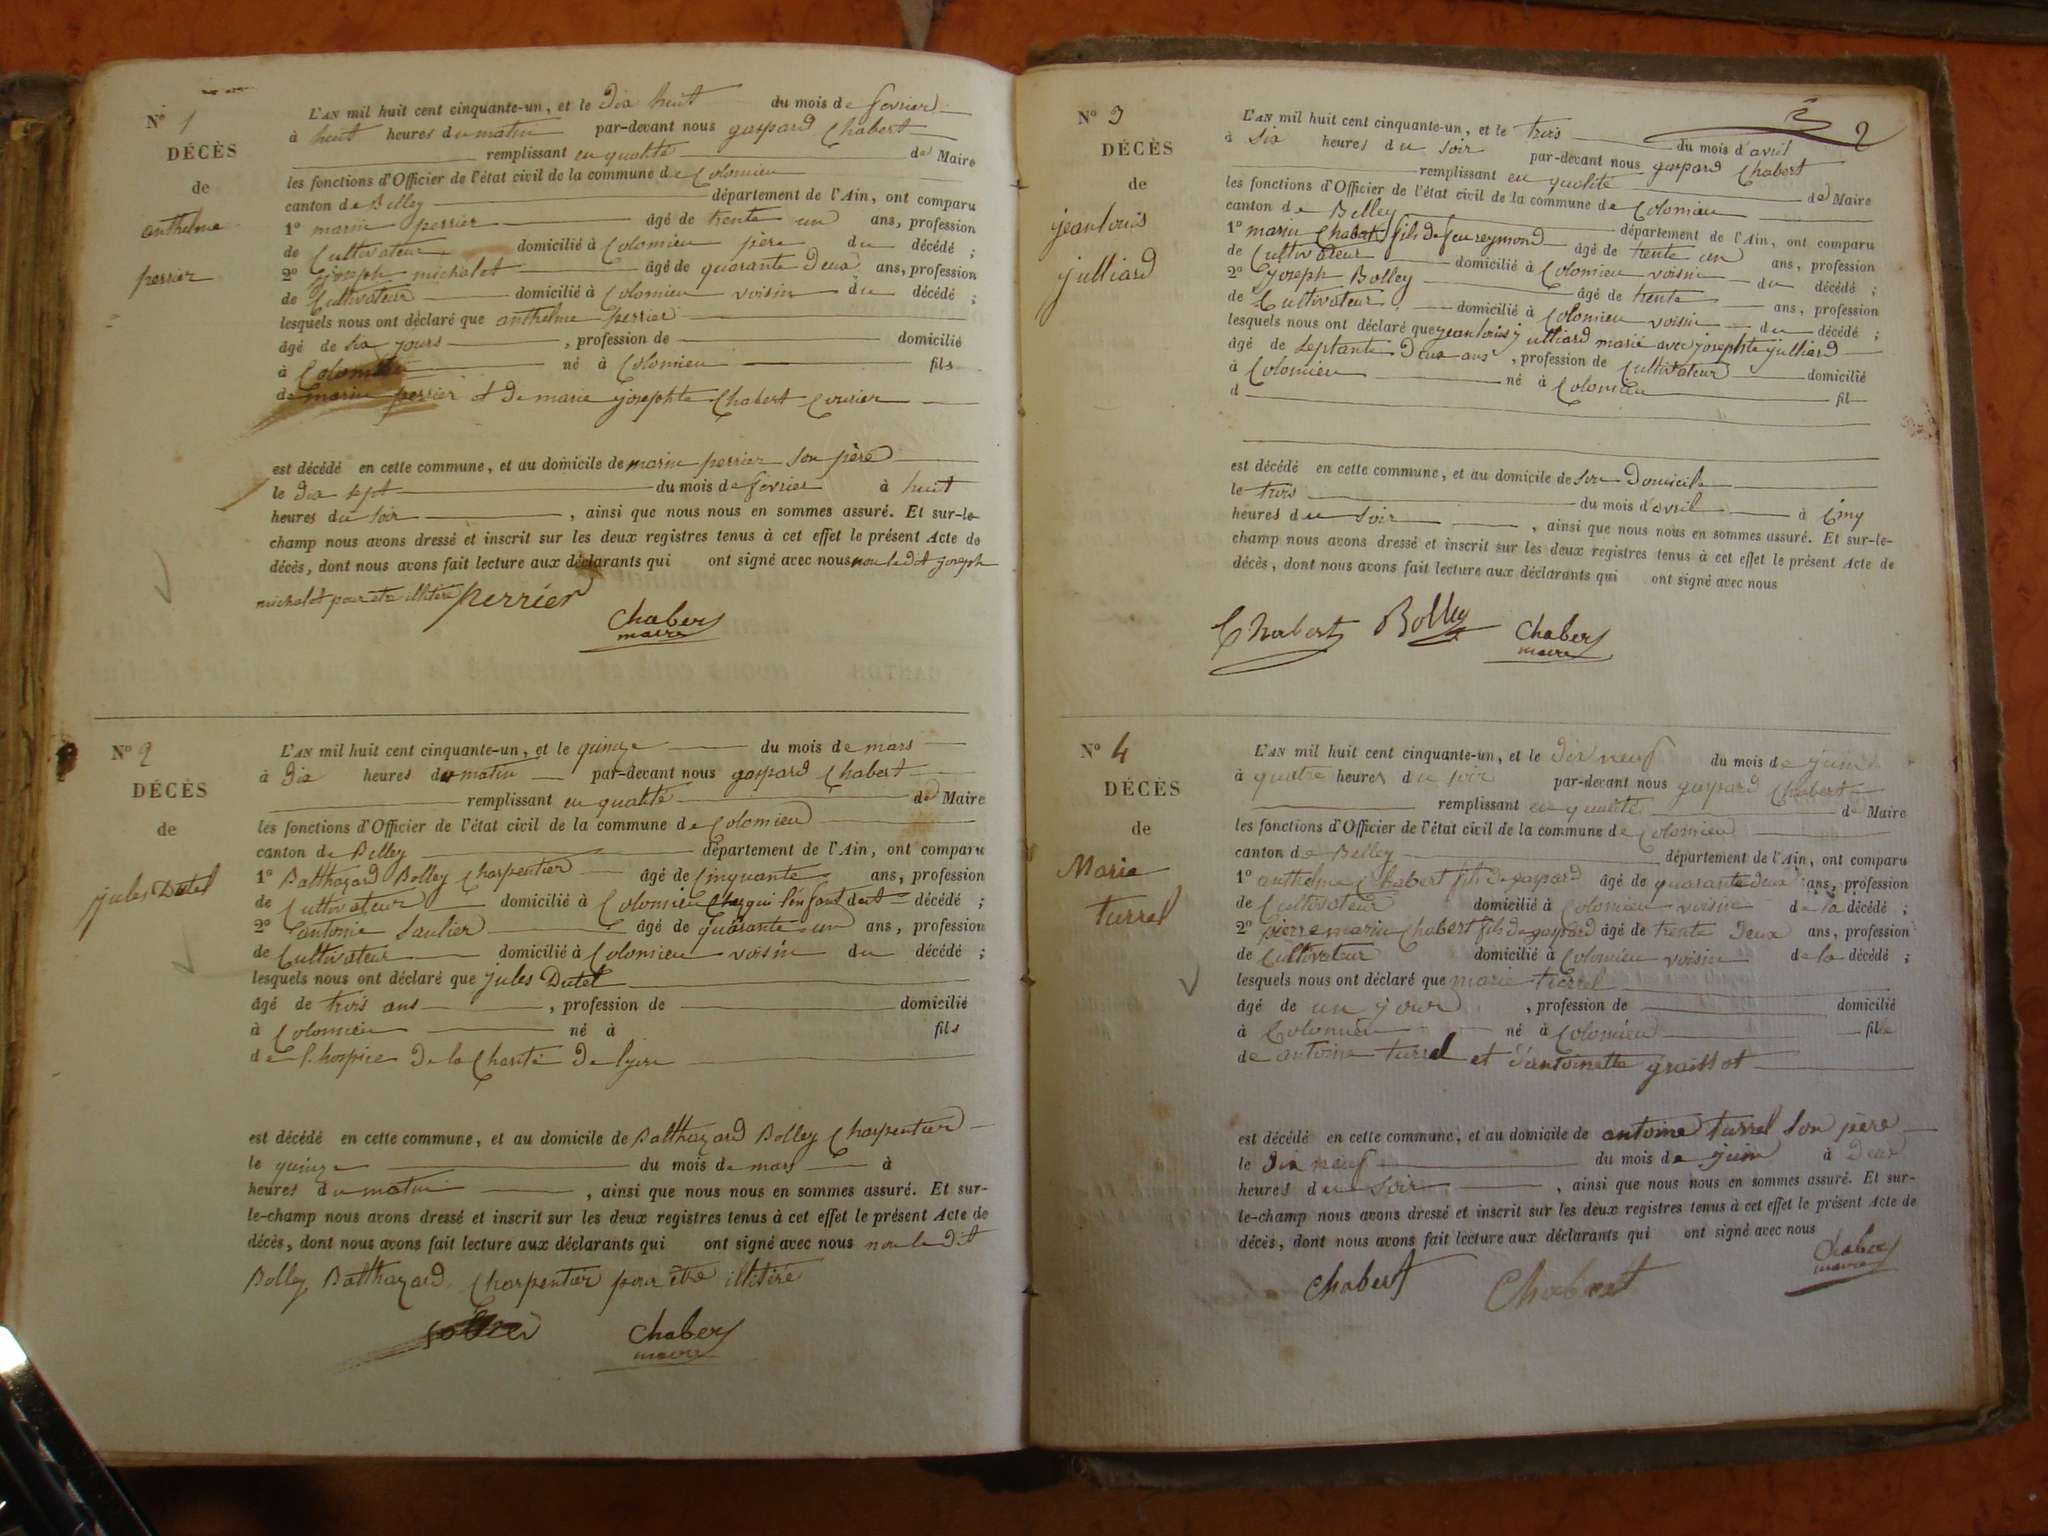 N° 1
DÉCÈS
de
anthelme
perrier
L'AN mil huit cent cinquante-un, et le dix huit du mois de fevrier
à huit heures du matin par-devant nous gaspard Chabert
remplissant en qualité de Maire
les fonctions d'Officier de l'état civil de la commune de Colomieu
canton de Belley département de l'Ain, ont comparu
1° marin perrier âgé de trente un ans, profession
de Cultivateur domicilié à Colomieu père du décédé ;
2° joseph michalet âgé de quarante deux ans, profession
de Cultivateur domicilié à Colomieu voisin du décédé ;
lesquels nous ont déclaré que anthelme perrier
âgé de six jours , profession de domicilié
à Colomieu né à Colomieu fils
de marin perrier et de marie josephte Chabert
est décédé en cette commune, et au domicile de marin perrier son père
le dix sept du mois de fevrier à huit
heures du soir , ainsi que nous nous en sommes assuré. Et sur-le-
champ nous avons dressé et inscrit sur les deux registres tenus à cet effet le présent Acte de
décès, dont nous avons fait lecture aux déclarants qui ont signé avec nous non le dt joseph
michalet pour etre illitéré perrier
Chabert
maire
N° 2
DÉCÈS
de
jules Dutel
L'AN mil huit cent cinquante-un, et le quinze du mois de mars
à dix heures du matin par-devant nous gaspard Chabert
remplissant en qualité de Maire
les fonctions d'Officier de l'état civil de la commune de Colomieu
canton de Belley département de l'Ain, ont comparu
1° Balthazard Bolley Charpentier âgé de Cinquante ans, profession
de Cultivateur domicilié à Colomieu Chez qui l'enfant est décédé ;
2° antoine Saulier âgé de quarante un ans, profession
de Cultivateur domicilié à Colomieu voisin du décédé ;
lesquels nous ont déclaré que jules Dutel
âgé de trois ans , profession de domicilié
à Colomieu né à fils
de l'hospice de la Charité de lyon
est décédé en cette commune, et au domicile de Balthazard Bolley Charpentier
le quinze du mois de mars à
heures du matin , ainsi que nous nous en sommes assuré. Et sur-
le-champ nous avons dressé et inscrit sur les deux registres tenus à cet effet le présent Acte de
décès, dont nous avons fait lecture aux déclarants qui ont signé avec nous non le dit
Bolley Balthazard Charpentier pour être illitéré
Chabert
maire
2
N° 3
DÉCÈS
de
jean louis
julliard
L'AN mil huit cent cinquante-un, et le trois du mois d'avril
à six heures du soir par-devant nous gaspard Chabert
remplissant en qualité de Maire
les fonctions d'Officier de l'état civil de la commune de Colomieu
canton de Belley département de l'Ain, ont comparu
1° marin Chabert fils de feu reymond âgé de trente un ans, profession
de Cultivateur domicilié à Colomieu voisin du décédé ;
2° joseph Bolley âgé de trente ans, profession
de Cultivateur domicilié à Colomieu voisin du décédé ;
lesquels nous ont déclaré que jean louis julliard marié avec josephte julliard
âgé de septante deux ans , profession de Cultivateur domicilié
à Colomieu né à Colomieu fil
d
est décédé en cette commune, et au domicile de son domicile
le trois du mois d'avril à Cinq
heures du soir , ainsi que nous nous en sommes assuré. Et sur-le-
champ nous avons dressé et inscrit sur les deux registres tenus à cet effet le présent Acte de
décès, dont nous avons fait lecture aux déclarants qui ont signé avec nous
Chabert Bolley Chabert
maire
N° 4
DÉCÈS
de
Marie
turrel
L'AN mil huit cent cinquante-un, et le dix neuf du mois de juin
à quatre heures du soir par-devant nous gaspard Chabert
remplissant en qualité de Maire
les fonctions d'Officier de l'état civil de la commune de Colomieu
canton de Belley département de l'Ain, ont comparu
1° anthelme Chabert fils de gaspard âgé de quarante deux ans, profession
de Cultivateur domicilié à Colomieu voisin de la décédé ;
2° pierre marin Chabert fils de gaspard âgé de trente deux ans, profession
de Cultivateur domicilié à Colomieu voisin de la décédé ;
lesquels nous ont déclaré que marie turrel
âgé de un jour , profession de domicilié
à Colomieu né à Colomieu fille
de antoine turrel et d'antoinette graillot
est décédé en cette commune, et au domicile de antoine turrel son père
le dix neuf du mois de juin à deux
heures du soir , ainsi que nous nous en sommes assuré. Et sur-
le-champ nous avons dressé et inscrit sur les deux registres tenus à cet effet le présent Acte de
décès, dont nous avons fait lecture aux déclarants qui ont signé avec nous
Chabert Chabert Chabert
maire